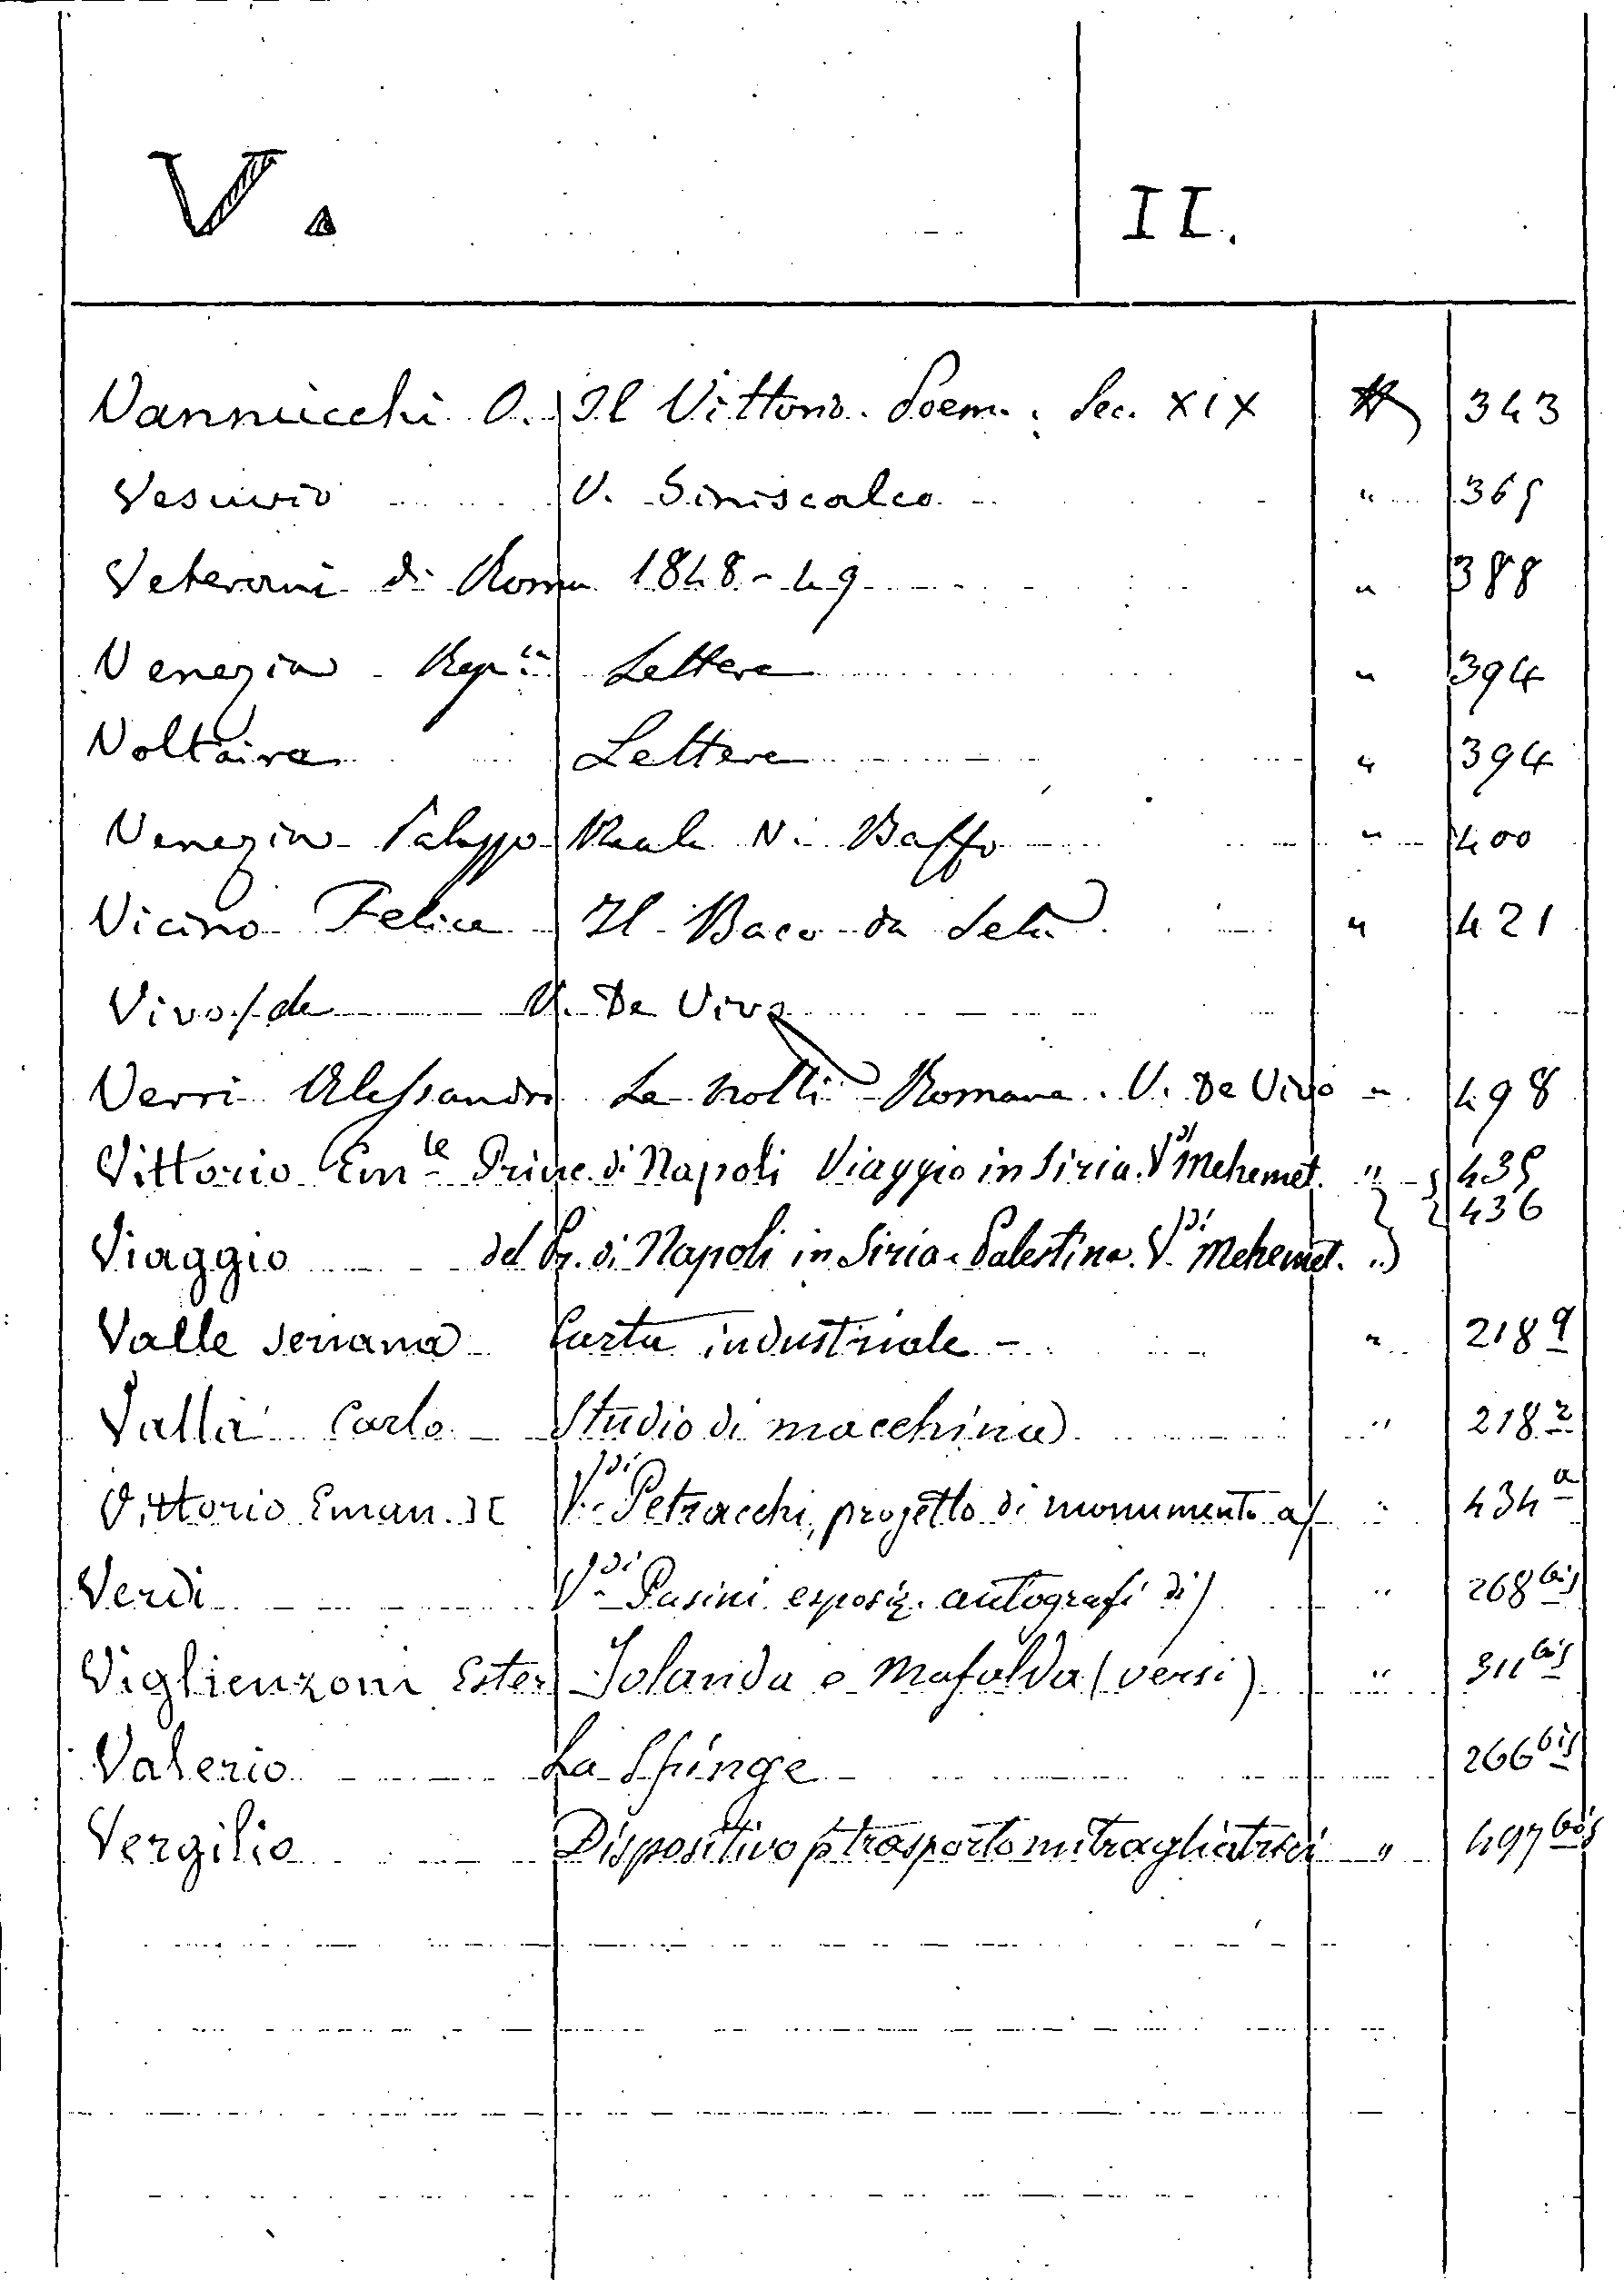 V. II.
Vannucchi O. Il Vittorio. Poem. Sec. XIX 343
Vesuvio V. Siniscalco " 365
Veterani di Roma 1848-49 " 388
Venezia Rep.ca Lettere " 394
Voltaire Lettere " 394
Venezia Palazzo Reale V. Baffo " 400
Vicino Felice Il Baco da Seta " 421
Vivo/de V. De Vivo
Verri Alessandro Le notti Romane. V. De Vivo " 498
Vittorio Em.le Princ. di Napoli Viaggio in Siria. V.di Mehemet. " 435
436
Viaggio del Pr. di Napoli in Siria e Palestina. V.di Mehemet. "
Valle seriana Carta industriale - " 218 q
Valla Carlo Studio di macchina " 218 r
Vittorio Eman. II V.di Petracchi, progetto di monumento a/ " 434 a
Verdi V.di Pasini esposiz. autografi di/ " 268 bis
Viglienzoni Ester Jolanda e Mafalda (versi) " 311 bis
Valerio La Sfinge 266 bis
Vergilio Dispositivo p trasporto mitragliatrici " 497 bis